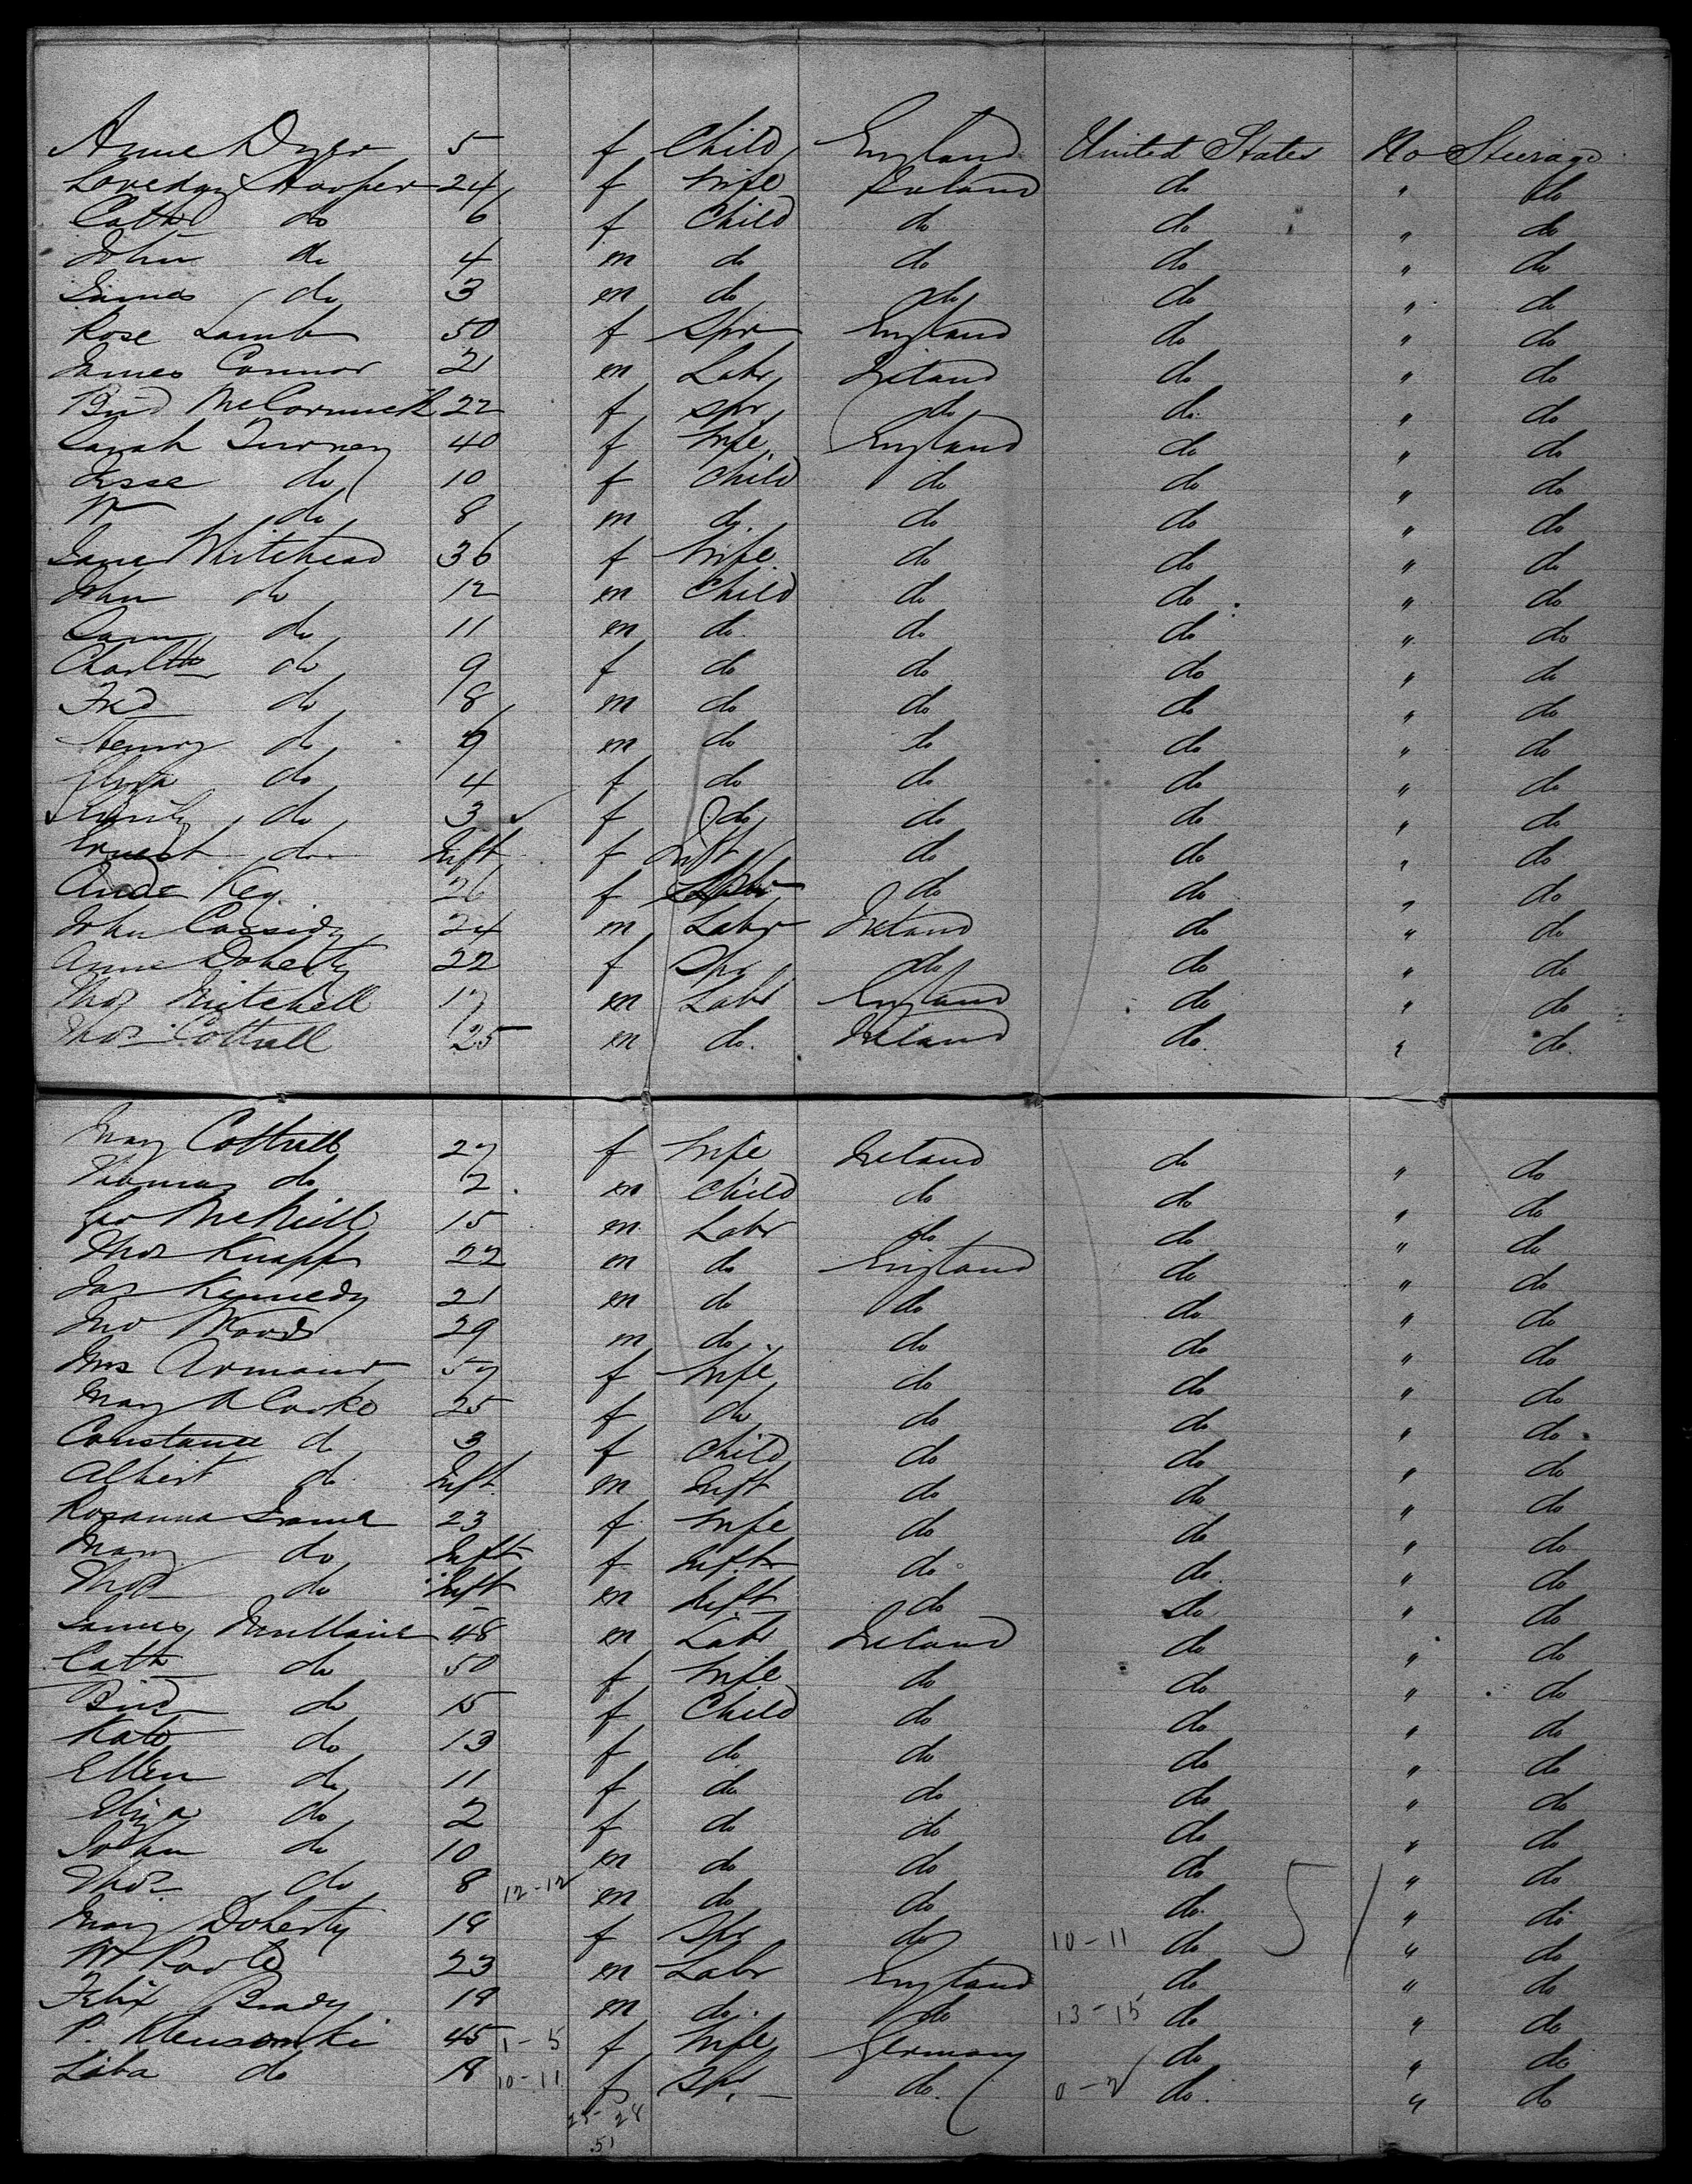 Anne Dyer 5 f Child England United States No Steerage
Loveday Hooper 24 f Wife Ireland do " do
Cath do 6 f Child do do " do
John do 4 m do do do " do
James do 3 m do do do " do
Rose Lamb 50 f Spr England do " do
James Connor 21 m Labr Ireland do " do
Brid McCormick 22 f Spr do do " do
Sarah Turney 40 f Wife England do " do
Jesse do 10 f Child do do " do
Wm do 8 m do do do " do
Jane Whitehead 36 f Wife do do " do
John do 12 m Child do do " do
Sam do 11 m do do do " do
Charltte do 9 f do do do " do
Fred do 8 m do do do " do
Henry do m do do do " do
Eliza do 4 f do do do " do
Emily do 3 f do do do " do
Ernest do Inft f Inft do do " do
Key 26 f do do " do
John Cassidy 24 m Labr Ireland do " do
Anne Doherty 22 f Spr do do " do
Thos Mitchell 17 m Labr England do " do
Thos Cottrell 25 m do Ireland do " do
Mary Cottrell 27 f Wife Ireland do " do
Thomas do 2 m Child do do " do
Geo McNeill 15 m Labr do do " do
Thos Knapp 22 m do England do " do
Jas Kennedy 21 m do do do " do
Jno Woods 29 m do do do " do
Mrs Armour 57 f Wife do do " do
Mary A Cooke 25 f do do do " do
Constance do 3 f Child do do " do
Albert do Inft m Inft do do " do
Rosanna 23 f Wife do do " do
Mary do Inft f Inft do do " do
Thos do Inft m Inft do do " do
James 48 m Labr Ireland do " do
Cath do 50 f Wife do do " do
Brid do 15 f Child do do " do
Kate do 13 f do do do " do
Ellen do 11 f do do do " do
Eliza do 2 f do do do " do
John do 10 m do do do " do
Thos do 8 12-12 m do do do " do
Mary Doherty 18 f Spr do 10-11 do 51 " do
Wm Poole 23 m Labr England do " do
Felix Brady 19 m do do 13-15 do " do
P. 45 1-5 f Wife Germany do " do
Liba do 18 10-11 f Spr do 0-2 do " do
23-28
51